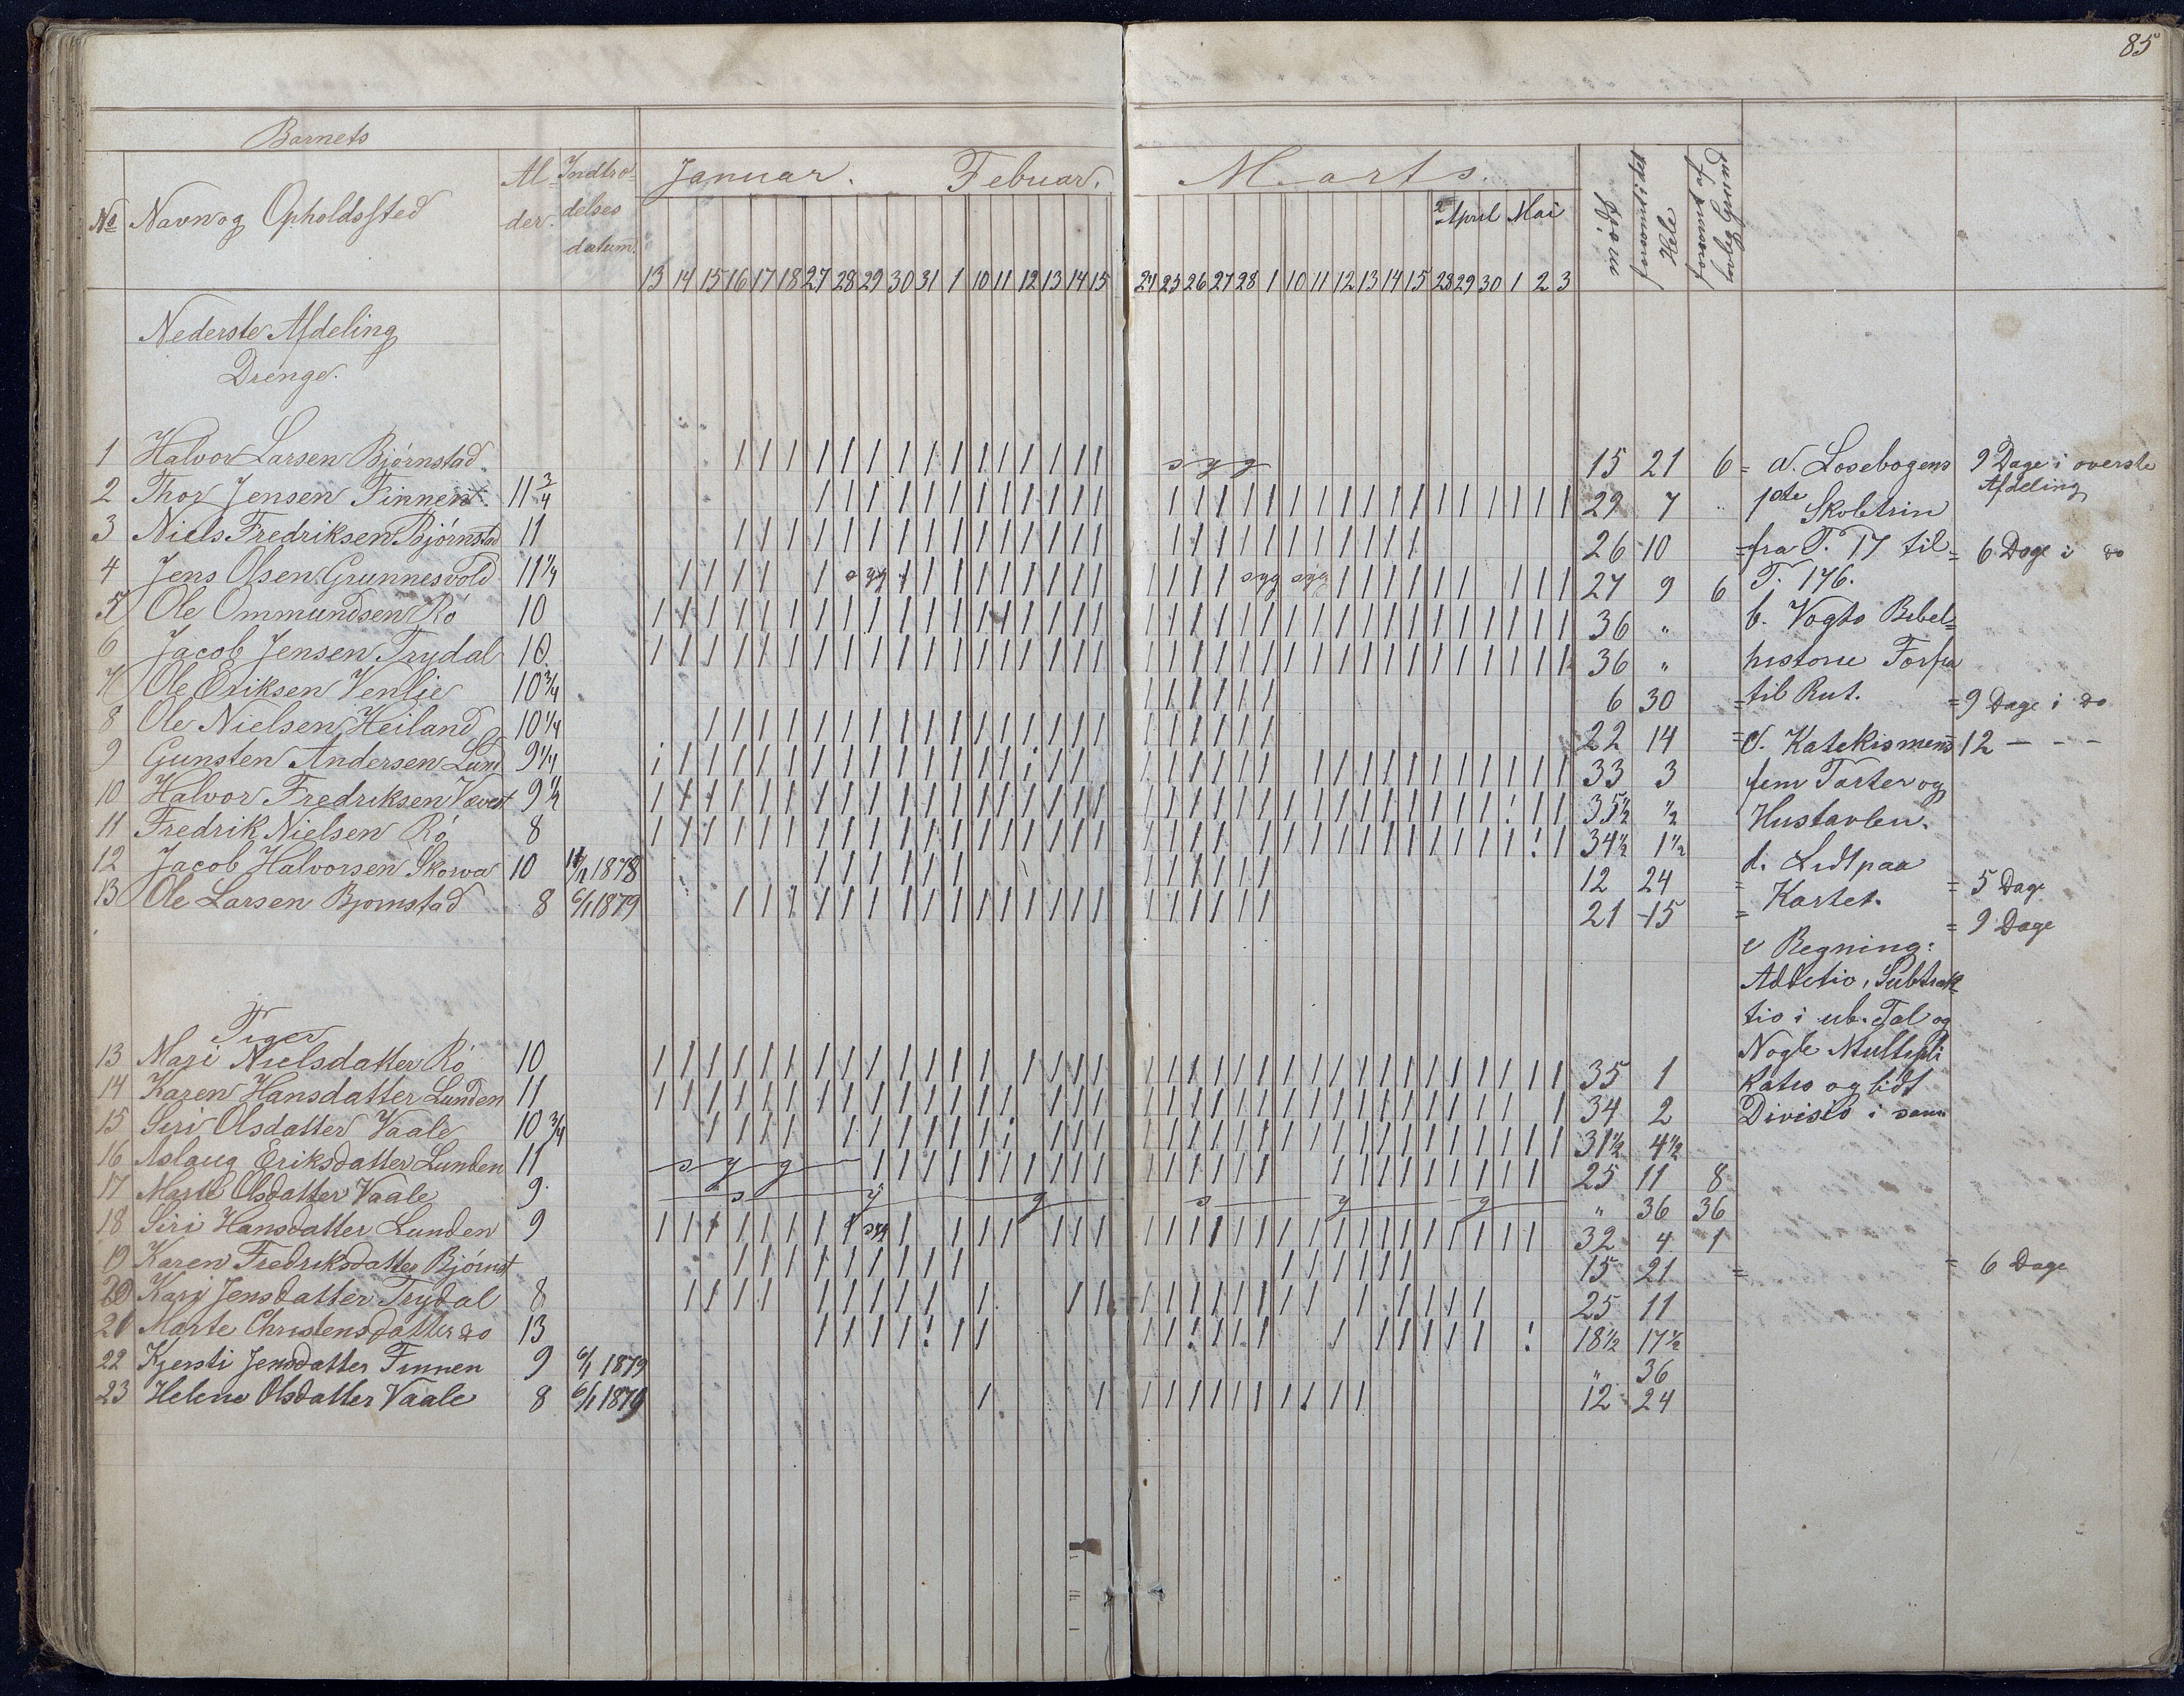 85
Barnets
Nº Navn og Opholdssted Al- der. Indtræ- delses datum. Januar. Februar. Marts. 2 April Mai Mødt forsømt i det Hele forsømt af lovlig Grund
13 14 15 16 17 18 27 28 29 30 31 1 10 11 12 13 14 15 24 25 26 27 28 1 10 11 12 13 14 15 28 29 30 1 2 3
Nederste Afdeling
Drenge.
1 Halvor Larsen Bjørnstad syg 15 21 6 = a. Læsebogens 9 Dage i øverste Afdeling
2 Thor Jensen Finnen 11 3/4 29 7 " 1ste Skoletrin
3 Niels Fredriksen Bjørnstad 11 26 10 = fra T. 17 til = 6 Dage i do
4 Jens Olsen Grunnesvold 11 1/4 syg syg syg 27 9 6 T. 176.
5 Ole Ommundsen Rö 10 36 " b. Vogts Bibel=
6 Jacob Jensen Trydal 10. 36 " historie Forfra
7 Ole Eriksen Venlie 10 3/4 6 30 = til Rut. = 9 Dage i do
8 Ole Nielsen Heiland 10 1/4 22 14 = c. Katekismens 12 - - -
9 Gunsten Andersen Lund 9 1/4 33 3 fem Parter og
10 Halvor Fredriksen Vævest 9 1/2 35 1/2 1/2 Hustavlen.
11 Fredrik Nielsen Rö 8 34 1/2 1 1/2
12 Jacob Halvorsen Skorva 10 1878 12 24 = d. Lidt paa = 5 Dage
13 Ole Larsen Bjørnstad 8 6/1 1879 21 15 = Kartet. = 9 Dage
e Regning:
Additio, Subtrak-
tio i ub. Tal og
Piger Nogle Multipli
13 Mari Nielsdatter Rö 10 35 1 katio og lidt
14 Karen Hansdatter Lunden 11 34 2 Divisio i samm
15 Siri Olsdatter Vaale 10 3/4 31 1/2 4 1/2
16 Aslaug Eriksdatter Lunden 11 syg 25 11 8
17 Marte Olsdatter Vaale 9. syg syg " 36 36
18 Siri Hansdatter Lunden 9 syg 32 4 1
19 Karen Fredriksdatter Bjørnst 15 21 = = 6 Dage
20 Kari Jensdatter Trydal 8 25 11
21 Marte Christensdatter do 13 18 1/2 17 1/2
22 Kjersti Jensdatter Finnen 9 6/1 1879 " 36
23 Helene Olsdatter Vaale 8 6/1 1879 12 24